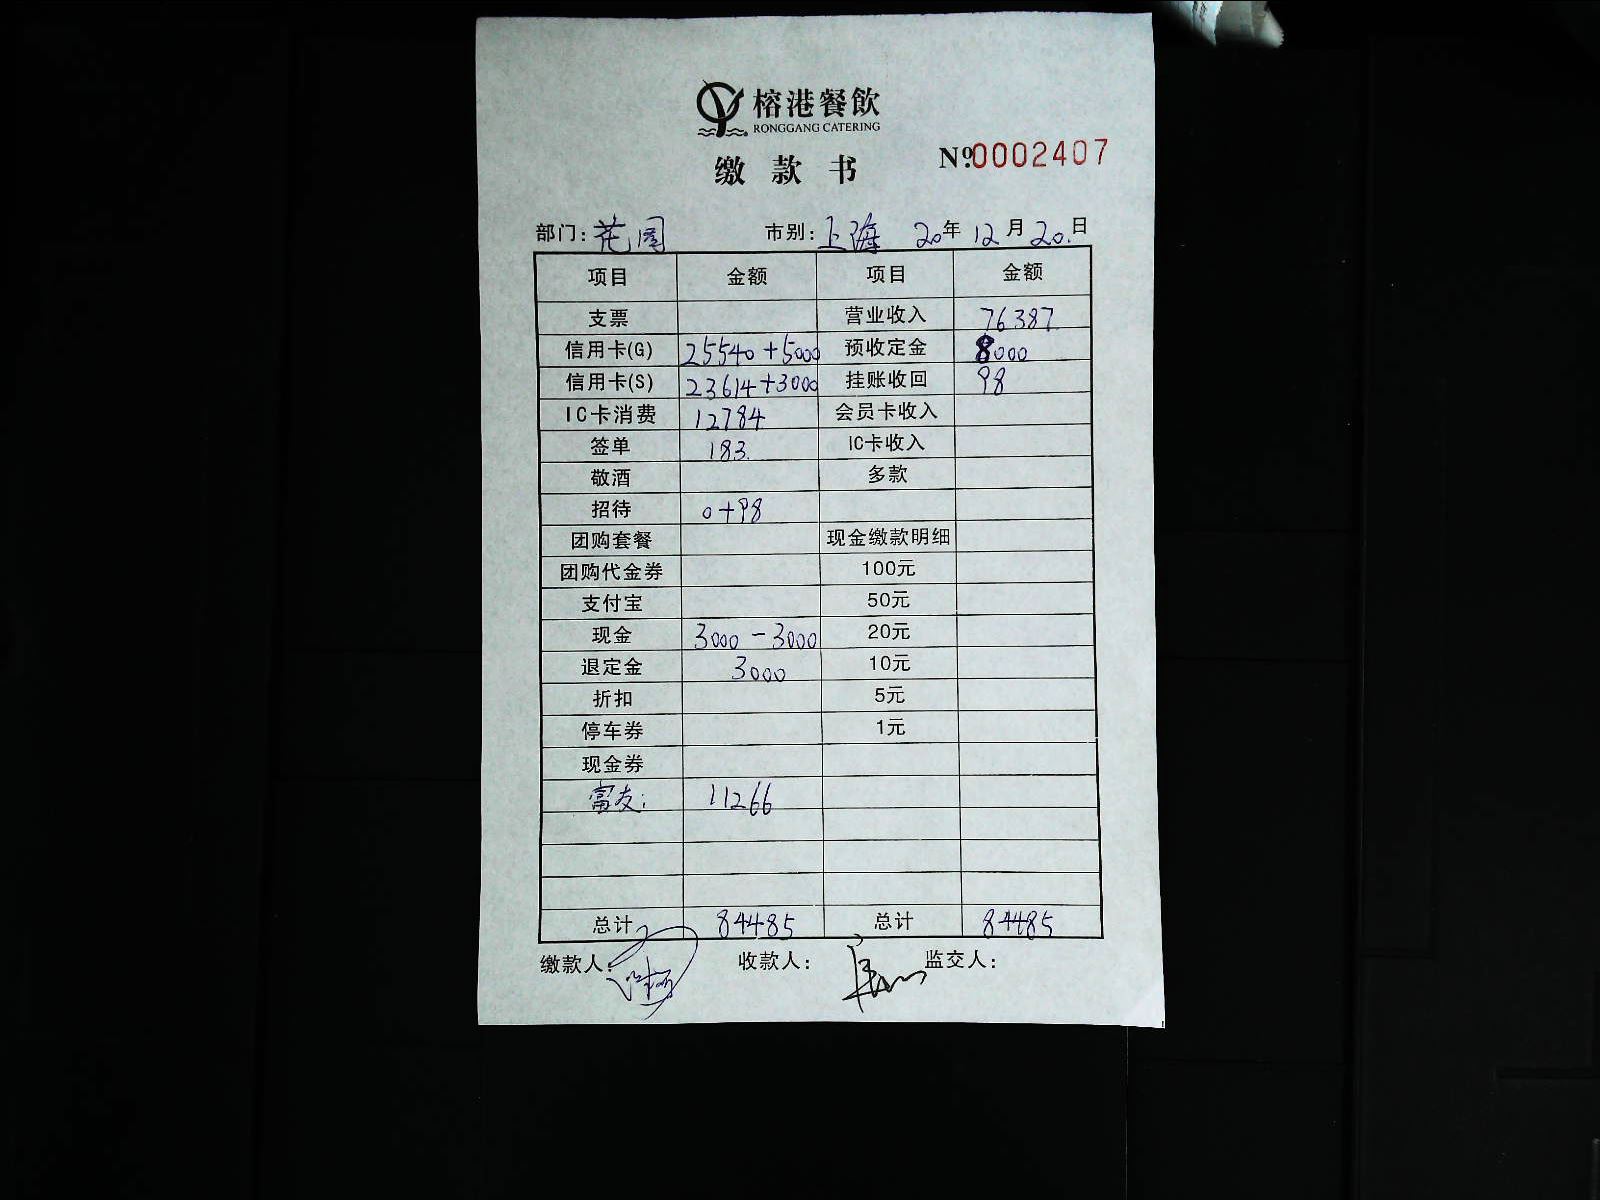 榕港餐飲
RONGGANG CATERING
缴款书 №0002407
部门: 花园 市别: 上海 20年12月20.日
项目 金额 项目 金额
支票 营业收入 76387
信用卡(G) 25540+5000 预收定金 8000
信用卡(S) 23614+3000 挂账收回 98
IC卡消费 12784 会员卡收入
签单 183. IC卡收入
敬酒 多款
招待 0+98
团购套餐 现金缴款明细
团购代金券 100元
支付宝 50元
现金 3000-3000 20元
退定金 3000 10元
折扣 5元
停车券 1元
现金券
富友: 11266
总计 84485 总计 84485
缴款人: 收款人: 监交人: